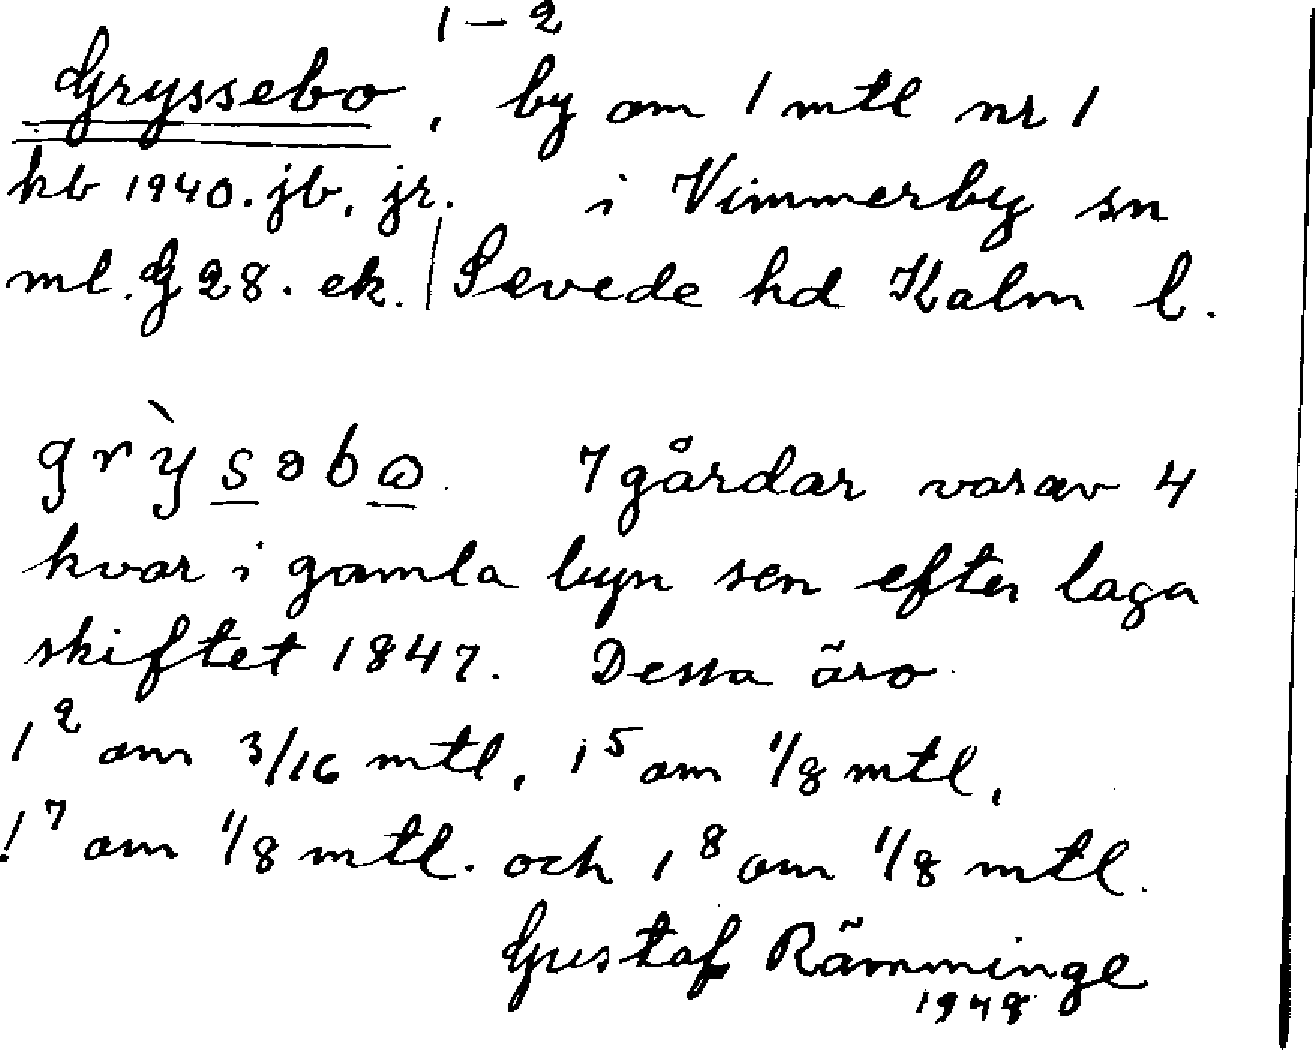 1 – 2
Gryssebo, by om 1 mtl nr 1
kb 1940. jb. jr. i Vimmerby sn
ml. G 28. ek. | Sevede hd Kalm l.
grỳsəbω. 7 gårdar varav 4
kvar i gamla byn sen efter laga
skiftet 1847. Dessa äro
1² om 3/16 mtl, 1⁵ om 1/8 mtl,
1⁷ om 1/8 mtl. och 1⁸ om 1/8 mtl.
Gustaf Rämminge
1948